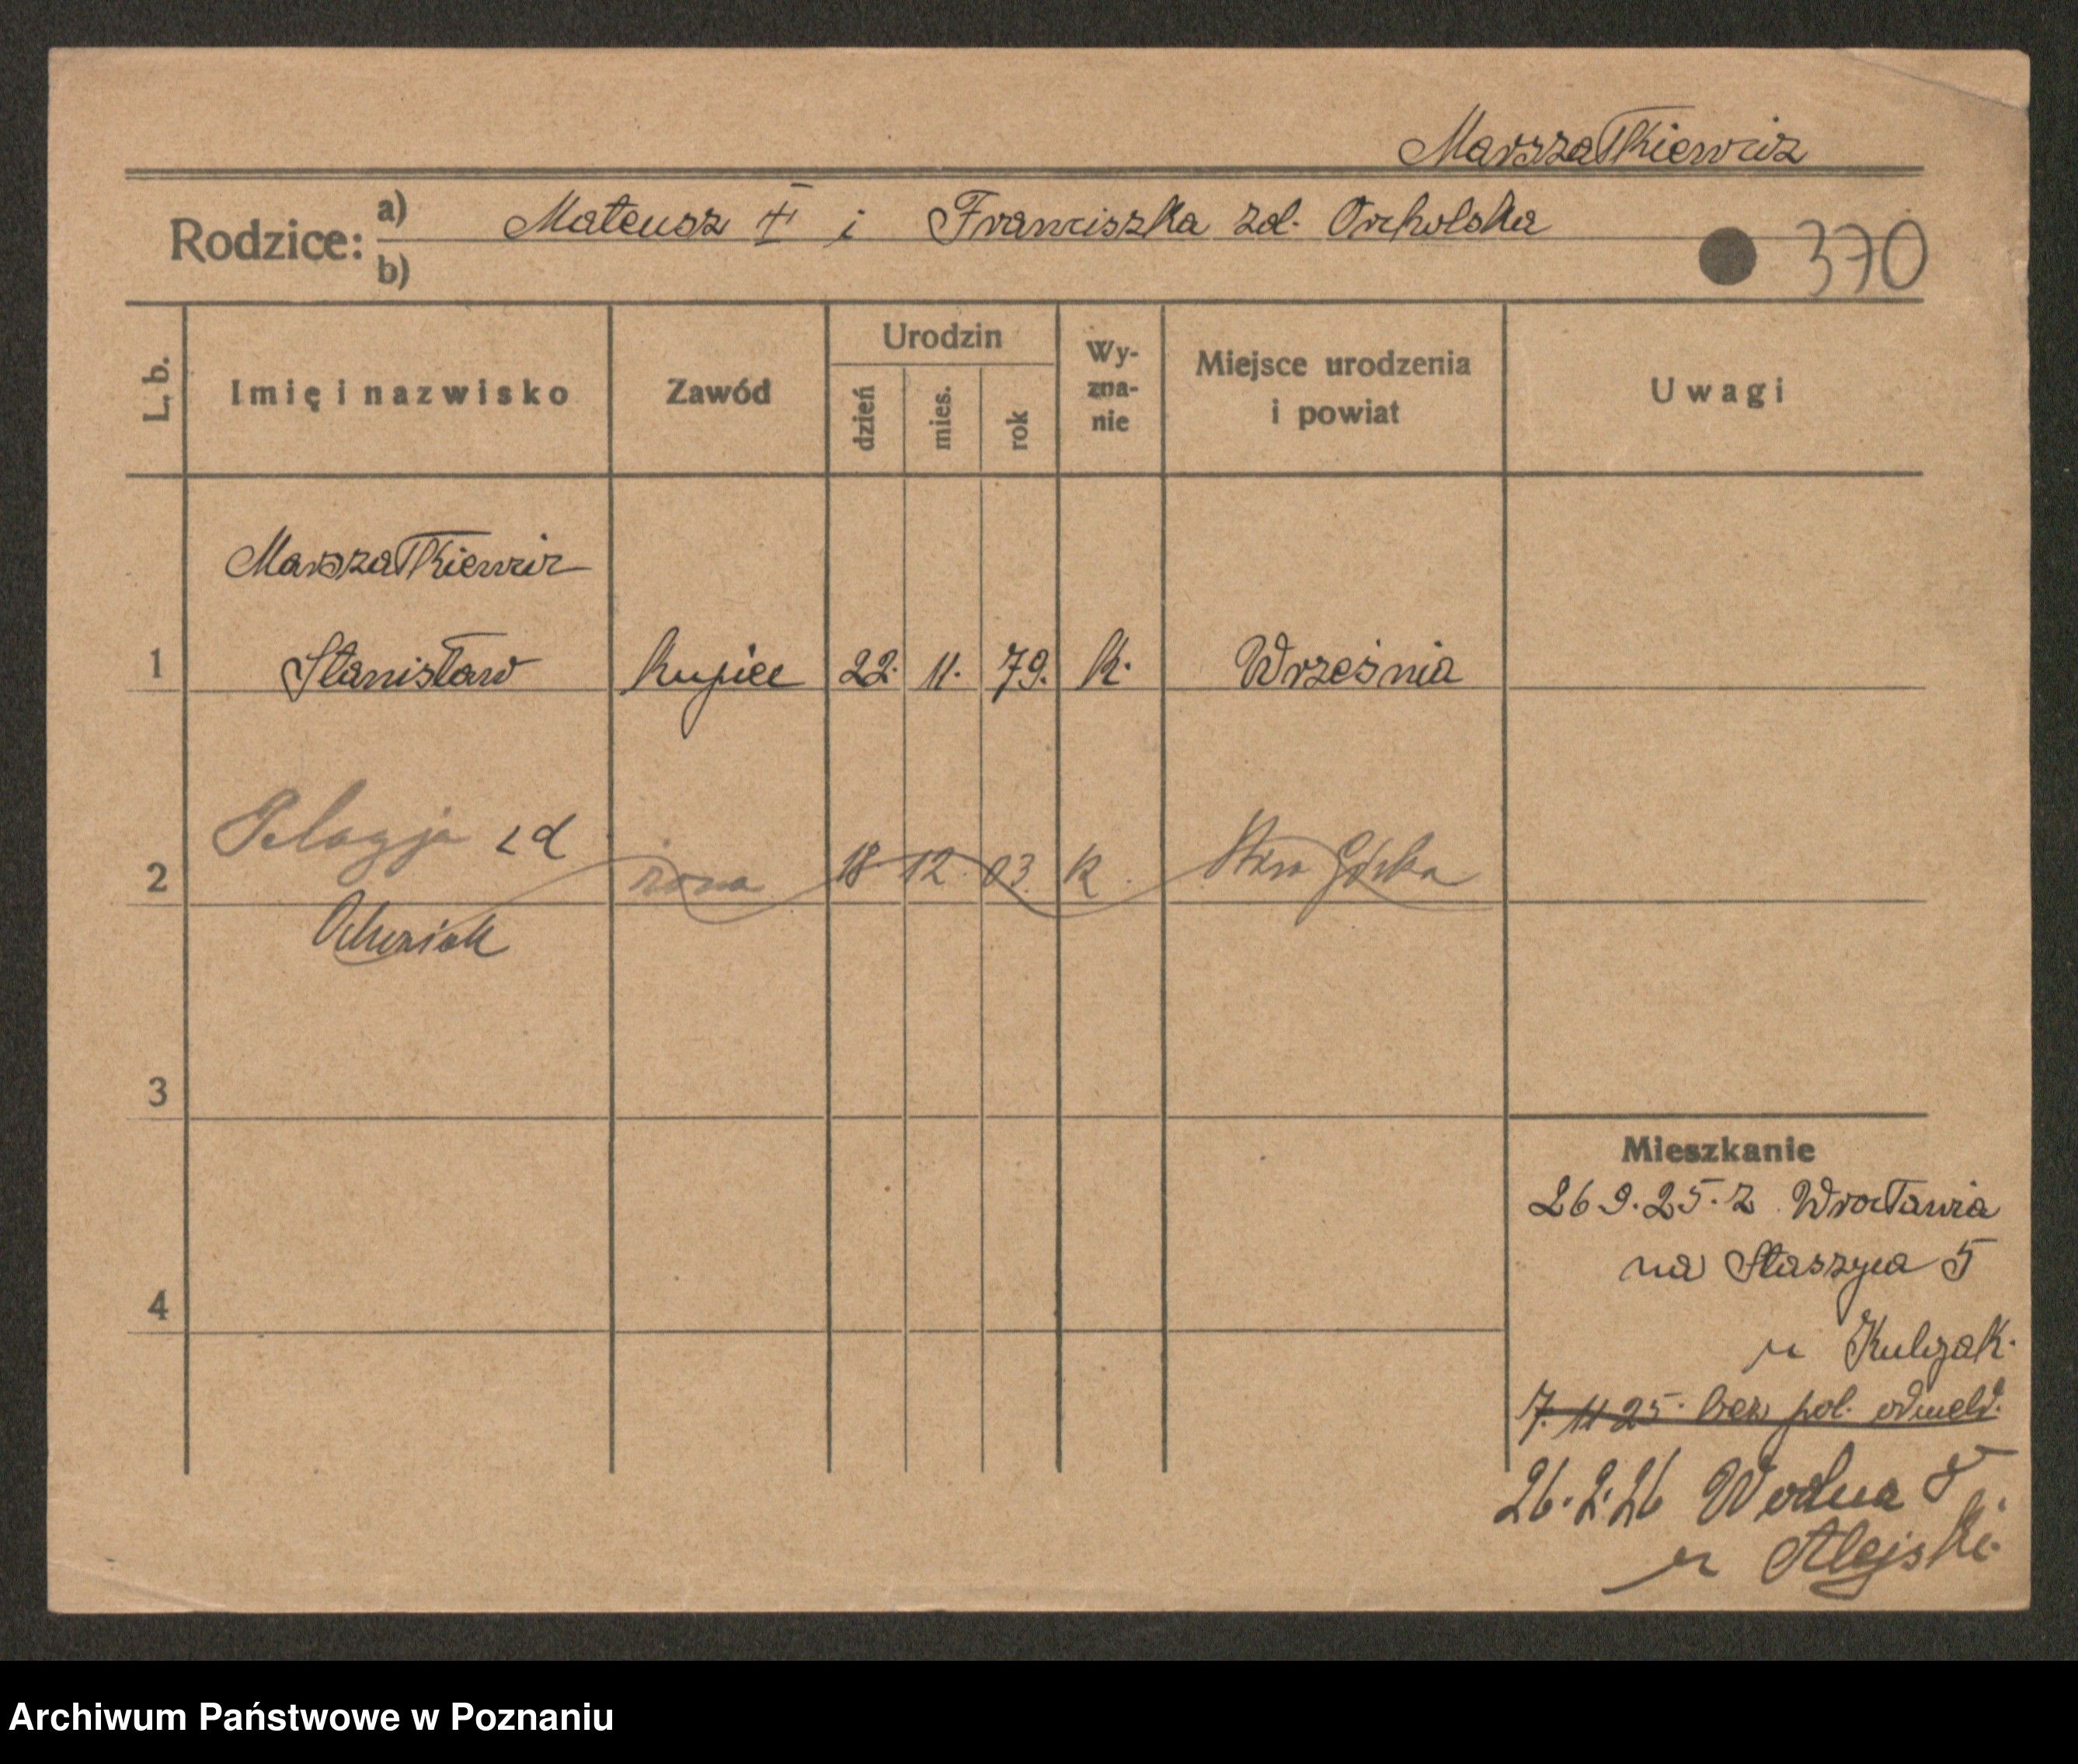 Marszałkiewicz
Rodzice: a) Mateusz ‡ i Franciszka zd. Orcholska
b)
370
L. b. Imię i nazwisko Zawód Urodzin dzień mies. rok Wyznanie Miejsce urodzenia i powiat Uwagi
Marszałkiewicz
1 Stanisław kupiec 22. 11. 79. k. Września
Pelagja zd
2 żona 18 12. 03. k. Górka
3
4
Mieszkanie
26.9.25. z Wrocławia
na Staszyca 5
u Kulczak.
7. 11 25. bez pol. odmeld.
26.2.26 Wodna 8
u Alejski.
Archiwum Państwowe w Poznaniu